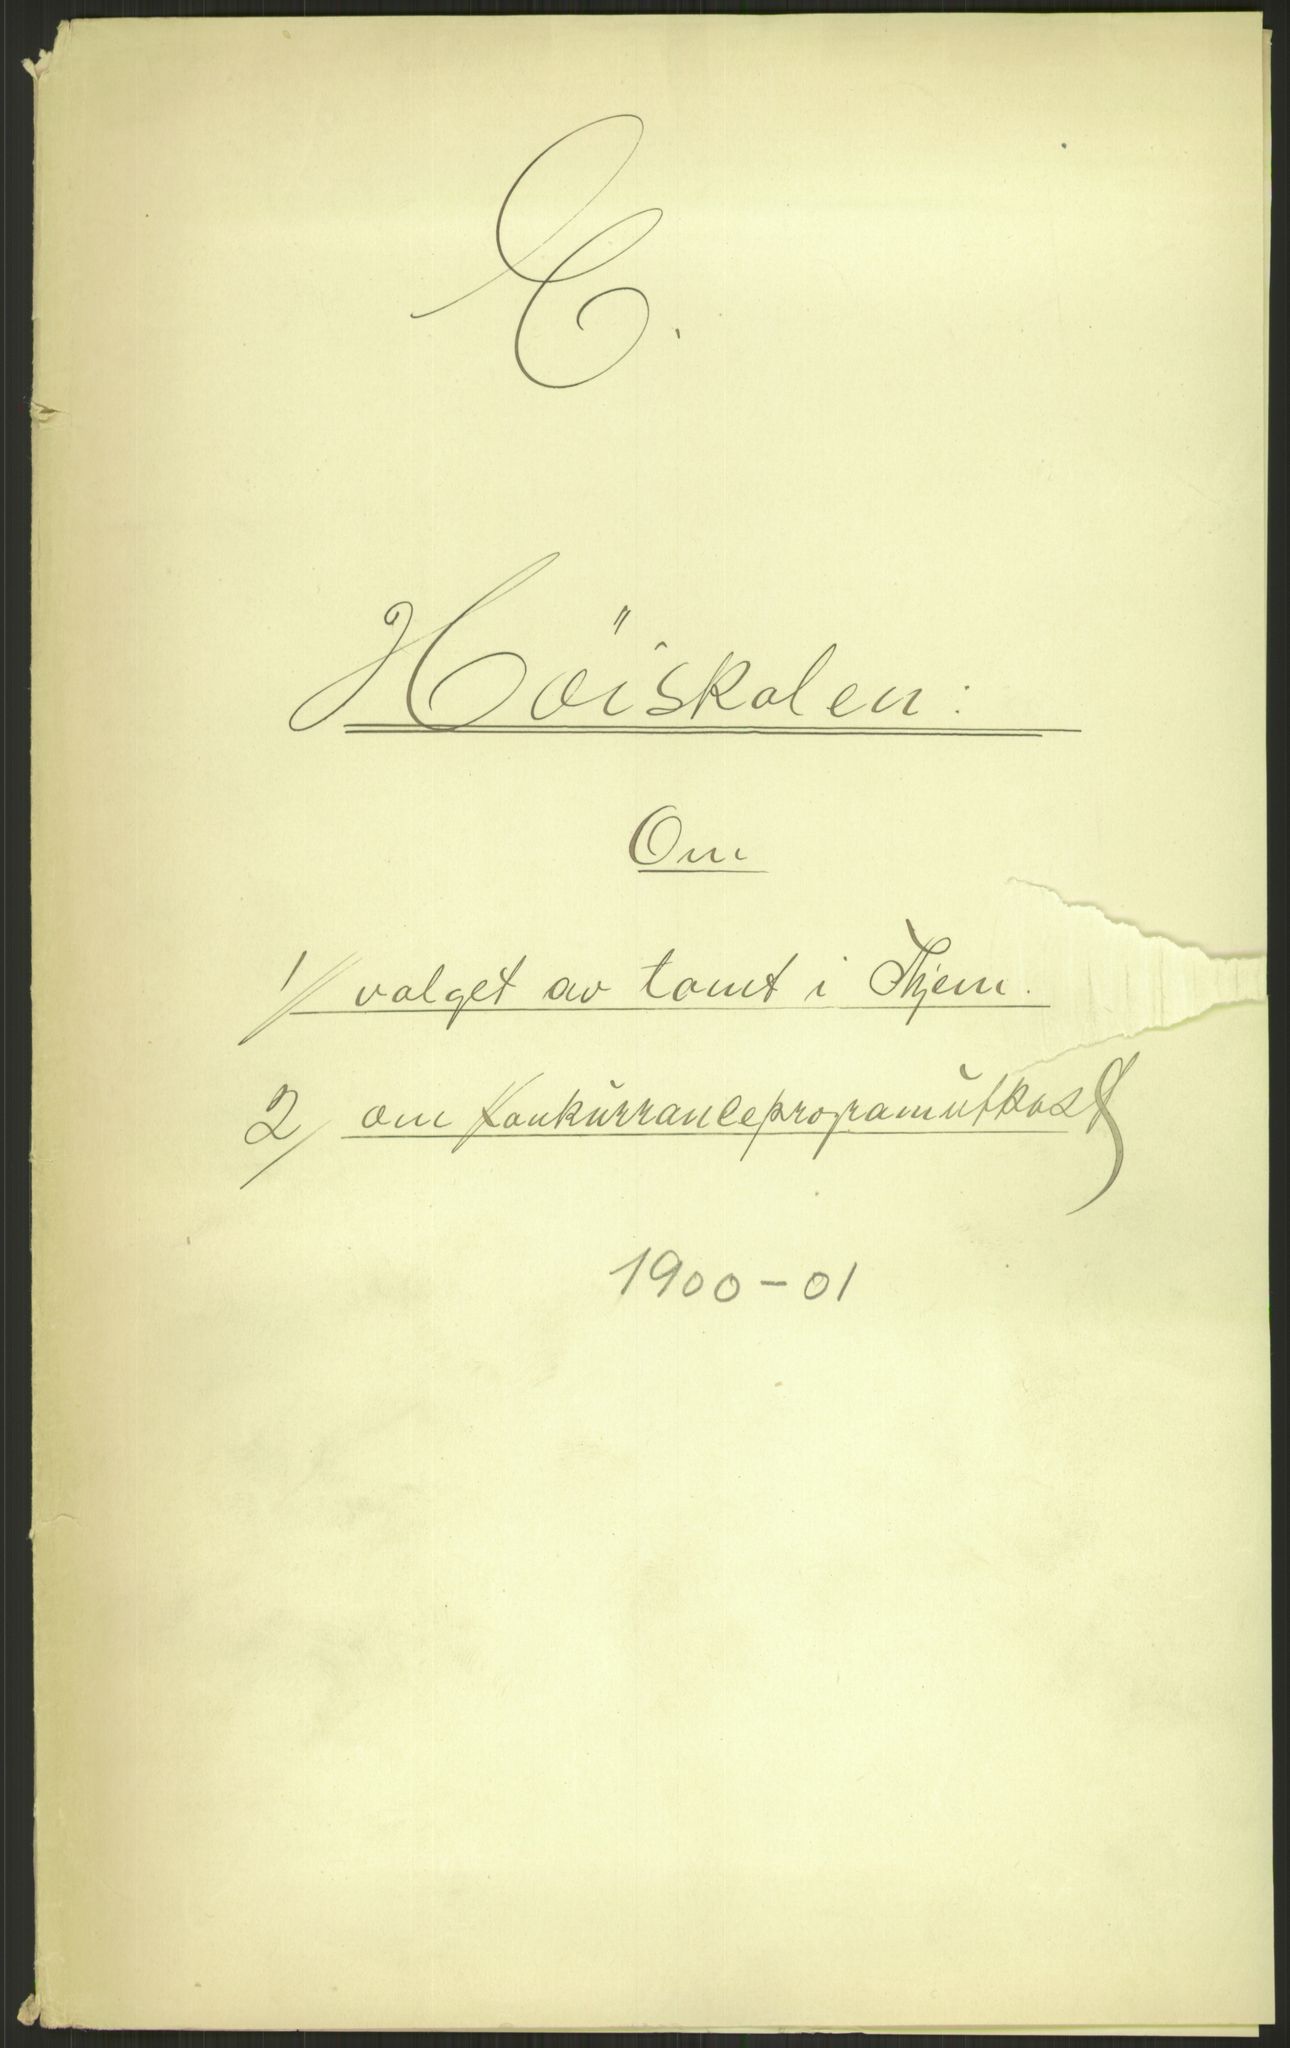 E.
Höiskolen:
Om
1/ valget av tomt i Thjem.
2/ om konkurranceprogramutkast
1900-01